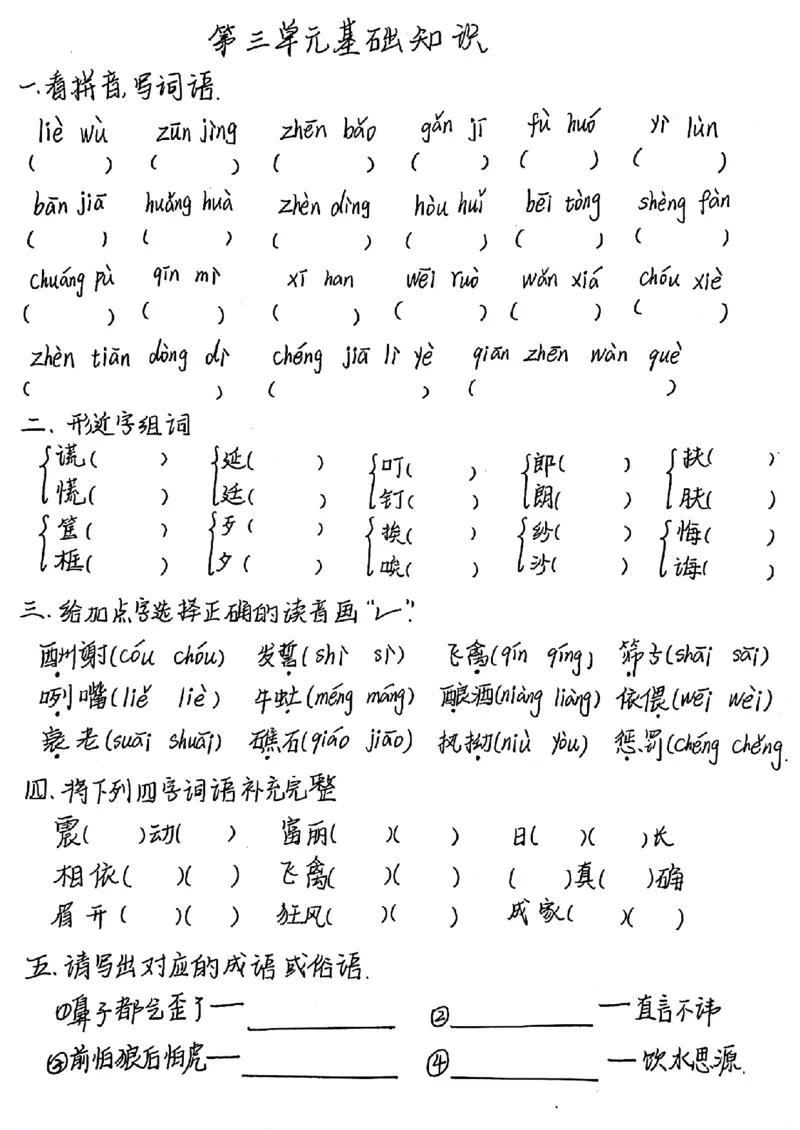 第三单元基础知识
一.看拼音,写词语.
liè wù zūn jìng zhēn bǎo gǎn jī fù huó yì lùn
( ) ( ) ( ) ( ) ( ) ( )
bān jiā huǎng huà zhèn dìng hòu huǐ bēi tòng shèng fàn
( ) ( ) ( ) ( ) ( ) ( )
chuáng pù qīn mì xī han wēi ruò wǎn xiá chóu xiè
( ) ( ) ( ) ( ) ( ) ( )
zhèn tiān dòng dì chéng jiā lì yè qiān zhēn wàn què
( ) ( ) ( )
二、形近字组词
谎( ) 延( ) 叮( ) 郎( ) 扶( )
慌( ) 廷( ) 钉( ) 朗( ) 肤( )
筐( ) 歹( ) 挨( ) 纱( ) 悔( )
框( ) 夕( ) 唉( ) 沙( ) 诲( )
三.给加点字选择正确的读音画“✓”.
酬谢(cóu chóu) 发誓(shì sì) 飞禽(qín qíng) 筛子(shāi sāi)
咧嘴(liě liè) 牛虻(méng máng) 酿酒(niàng liàng) 依偎(wēi wèi)
衰老(suāi shuāi) 礁石(qiáo jiāo) 执拗(niù yòu) 惩罚(chéng chěng.
四.将下列四字词语补充完整
震( )动( ) 富丽( )( ) 日( )( )长
相依( )( ) 飞禽( )( ) ( )真( )确
眉开( )( ) 狂风( )( ) 成家( )( )
五.请写出对应的成语或俗语.
①鼻子都气歪了—— ②——直言不讳
③前怕狼后怕虎—— ④——饮水思源.